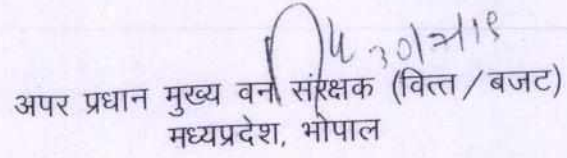 अपर प्रधान मुख्य वन संरक्षक (वित्त/बजट)
मध्यप्रदेश, भोपाल